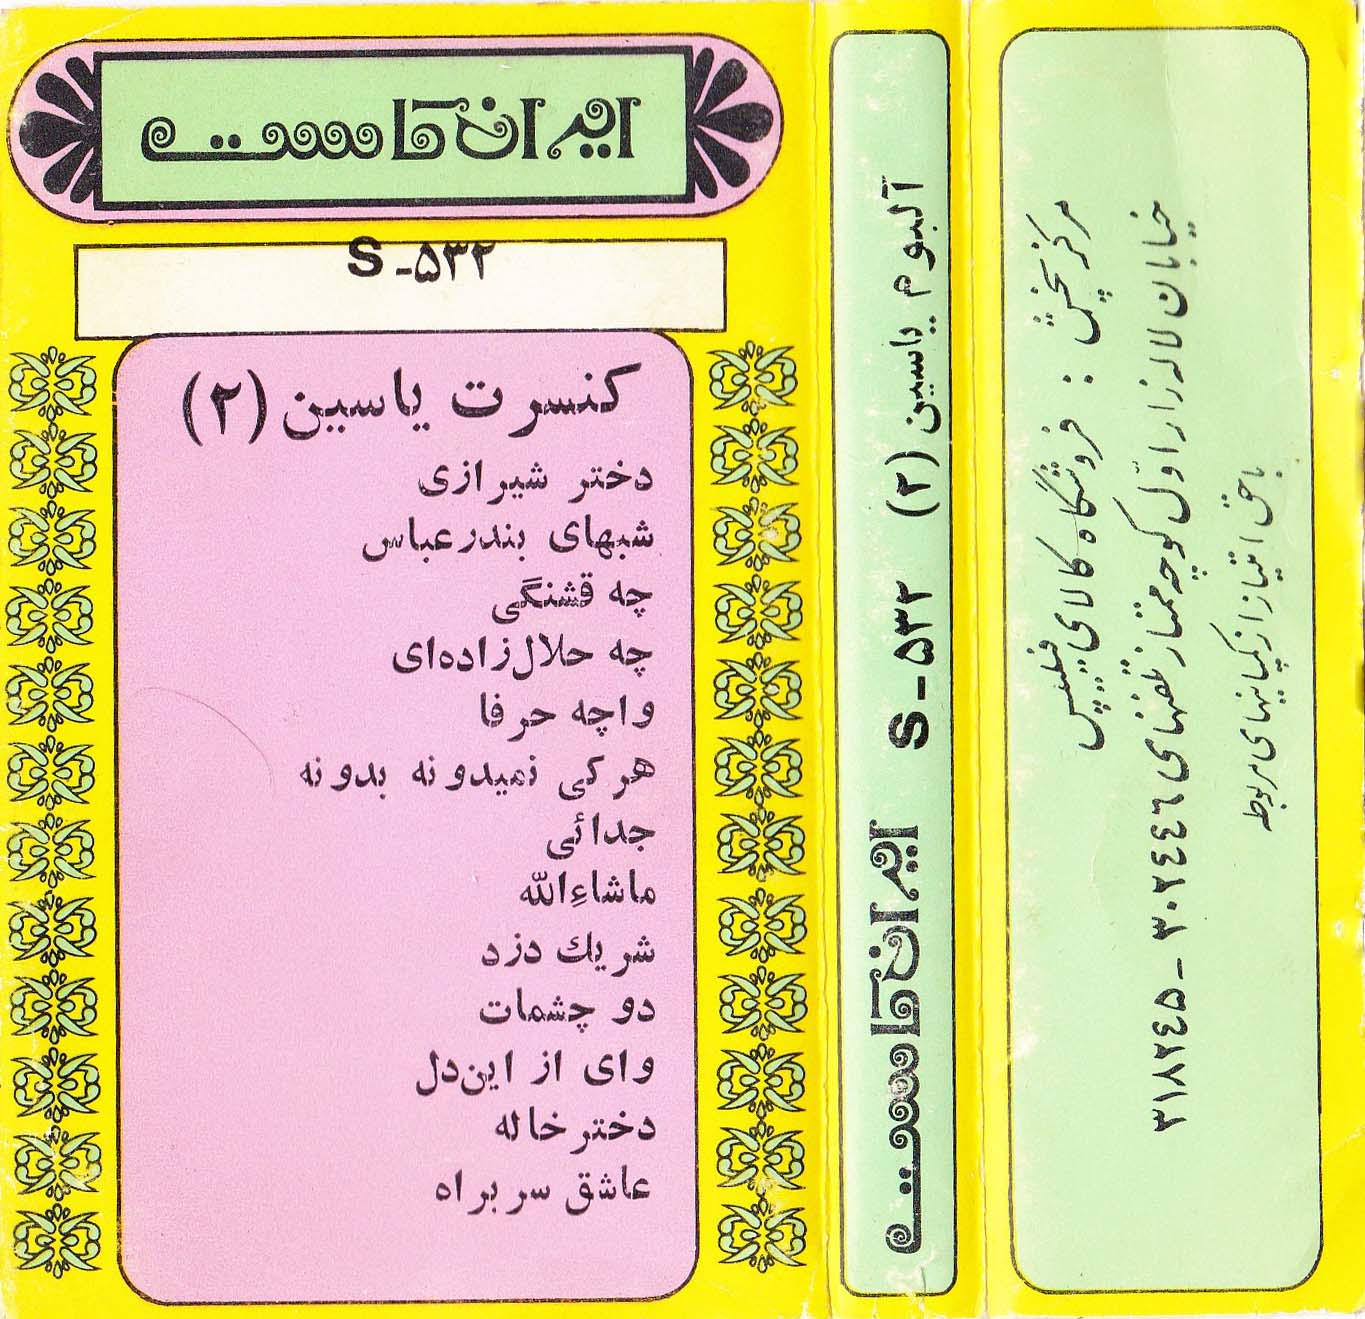 ایران کاست
S-۵۳۲
کنسرت یاسین (۲)
دختر شیرازی
شبهای بندرعباس
چه قشنگی
چه حلال‌زاده‌ای
واچه حرفا
هرکی نمیدونه بدونه
جدائی
ماشاءِالله
شریك دزد
دو چشمات
وای از این‌دل
دخترخاله
عاشق سربراه
آلبوم یاسین (۲) S-۵۳۲ ایران کاست
مرکز پخش : فروشگاه کالای فیلیپس
خیابان لاله‌زار اوّل کوچه ممتاز تلفنهای ۳۰۲٤٤٦ - ۳۱۸۲٤۵
با حق امتیاز از کمپانیهای مربوطه